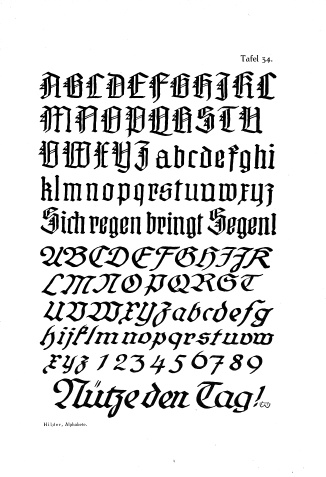 Tafel 34.
ABCDEFGHIJKL
MNOPQRSTU
VWXYZ abcdefghi
klmnopqrstuvwxyz
Sich regen bringt Segen!
ABCDEFGHIJK
LMNOPQRST
UVWXYZ abcdefg
hijklmnopqrstuvw
xyz 123456789
Nütze den Tag!
Hilder, Alphabete.